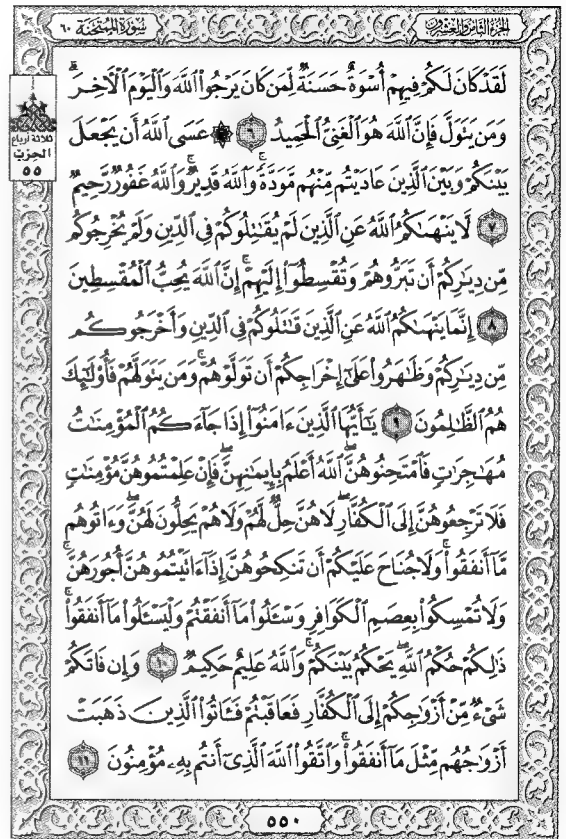 سُورَةُ المُمْتَحنَة ٦٠
الجزءُ الثَّامِنُ وَالعِشْرُونَ
ثلاثة أرباع
الحزب
٥٥
لَقَدْ كَانَ لَكُمْ فِيهِمْ أُسْوَةٌ حَسَنَةٌ لِّمَن كَانَ يَرْجُوا۟ ٱللَّهَ وَٱلْيَوْمَ ٱلْـَٔاخِرَ ۚ
وَمَن يَتَوَلَّ فَإِنَّ ٱللَّهَ هُوَ ٱلْغَنِىُّ ٱلْحَمِيدُ ٦ ۞ عَسَى ٱللَّهُ أَن يَجْعَلَ
بَيْنَكُمْ وَبَيْنَ ٱلَّذِينَ عَادَيْتُم مِّنْهُم مَّوَدَّةً ۚ وَٱللَّهُ قَدِيرٌ ۚ وَٱللَّهُ غَفُورٌ رَّحِيمٌ
٧ لَّا يَنْهَىٰكُمُ ٱللَّهُ عَنِ ٱلَّذِينَ لَمْ يُقَـٰتِلُوكُمْ فِى ٱلدِّينِ وَلَمْ يُخْرِجُوكُم
مِّن دِيَـٰرِكُمْ أَن تَبَرُّوهُمْ وَتُقْسِطُوٓا۟ إِلَيْهِمْ ۚ إِنَّ ٱللَّهَ يُحِبُّ ٱلْمُقْسِطِينَ
٨ إِنَّمَا يَنْهَىٰكُمُ ٱللَّهُ عَنِ ٱلَّذِينَ قَـٰتَلُوكُمْ فِى ٱلدِّينِ وَأَخْرَجُوكُم
مِّن دِيَـٰرِكُمْ وَظَـٰهَرُوا۟ عَلَىٰٓ إِخْرَاجِكُمْ أَن تَوَلَّوْهُمْ ۚ وَمَن يَتَوَلَّهُمْ فَأُو۟لَـٰٓئِكَ
هُمُ ٱلظَّـٰلِمُونَ ٩ يَـٰٓأَيُّهَا ٱلَّذِينَ ءَامَنُوٓا۟ إِذَا جَآءَكُمُ ٱلْمُؤْمِنَـٰتُ
مُهَـٰجِرَٰتٍ فَٱمْتَحِنُوهُنَّ ۖ ٱللَّهُ أَعْلَمُ بِإِيمَـٰنِهِنَّ ۖ فَإِنْ عَلِمْتُمُوهُنَّ مُؤْمِنَـٰتٍ
فَلَا تَرْجِعُوهُنَّ إِلَى ٱلْكُفَّارِ ۖ لَا هُنَّ حِلٌّ لَّهُمْ وَلَا هُمْ يَحِلُّونَ لَهُنَّ ۖ وَءَاتُوهُم
مَّآ أَنفَقُوا۟ ۚ وَلَا جُنَاحَ عَلَيْكُمْ أَن تَنكِحُوهُنَّ إِذَآ ءَاتَيْتُمُوهُنَّ أُجُورَهُنَّ ۚ
وَلَا تُمْسِكُوا۟ بِعِصَمِ ٱلْكَوَافِرِ وَسْـَٔلُوا۟ مَآ أَنفَقْتُمْ وَلْيَسْـَٔلُوا۟ مَآ أَنفَقُوا۟ ۚ
ذَٰلِكُمْ حُكْمُ ٱللَّهِ ۖ يَحْكُمُ بَيْنَكُمْ ۚ وَٱللَّهُ عَلِيمٌ حَكِيمٌ ١٠ وَإِن فَاتَكُمْ
شَىْءٌ مِّنْ أَزْوَٰجِكُمْ إِلَى ٱلْكُفَّارِ فَعَاقَبْتُمْ فَـَٔاتُوا۟ ٱلَّذِينَ ذَهَبَتْ
أَزْوَٰجُهُم مِّثْلَ مَآ أَنفَقُوا۟ ۚ وَٱتَّقُوا۟ ٱللَّهَ ٱلَّذِىٓ أَنتُم بِهِۦ مُؤْمِنُونَ ١١
٥٥٠